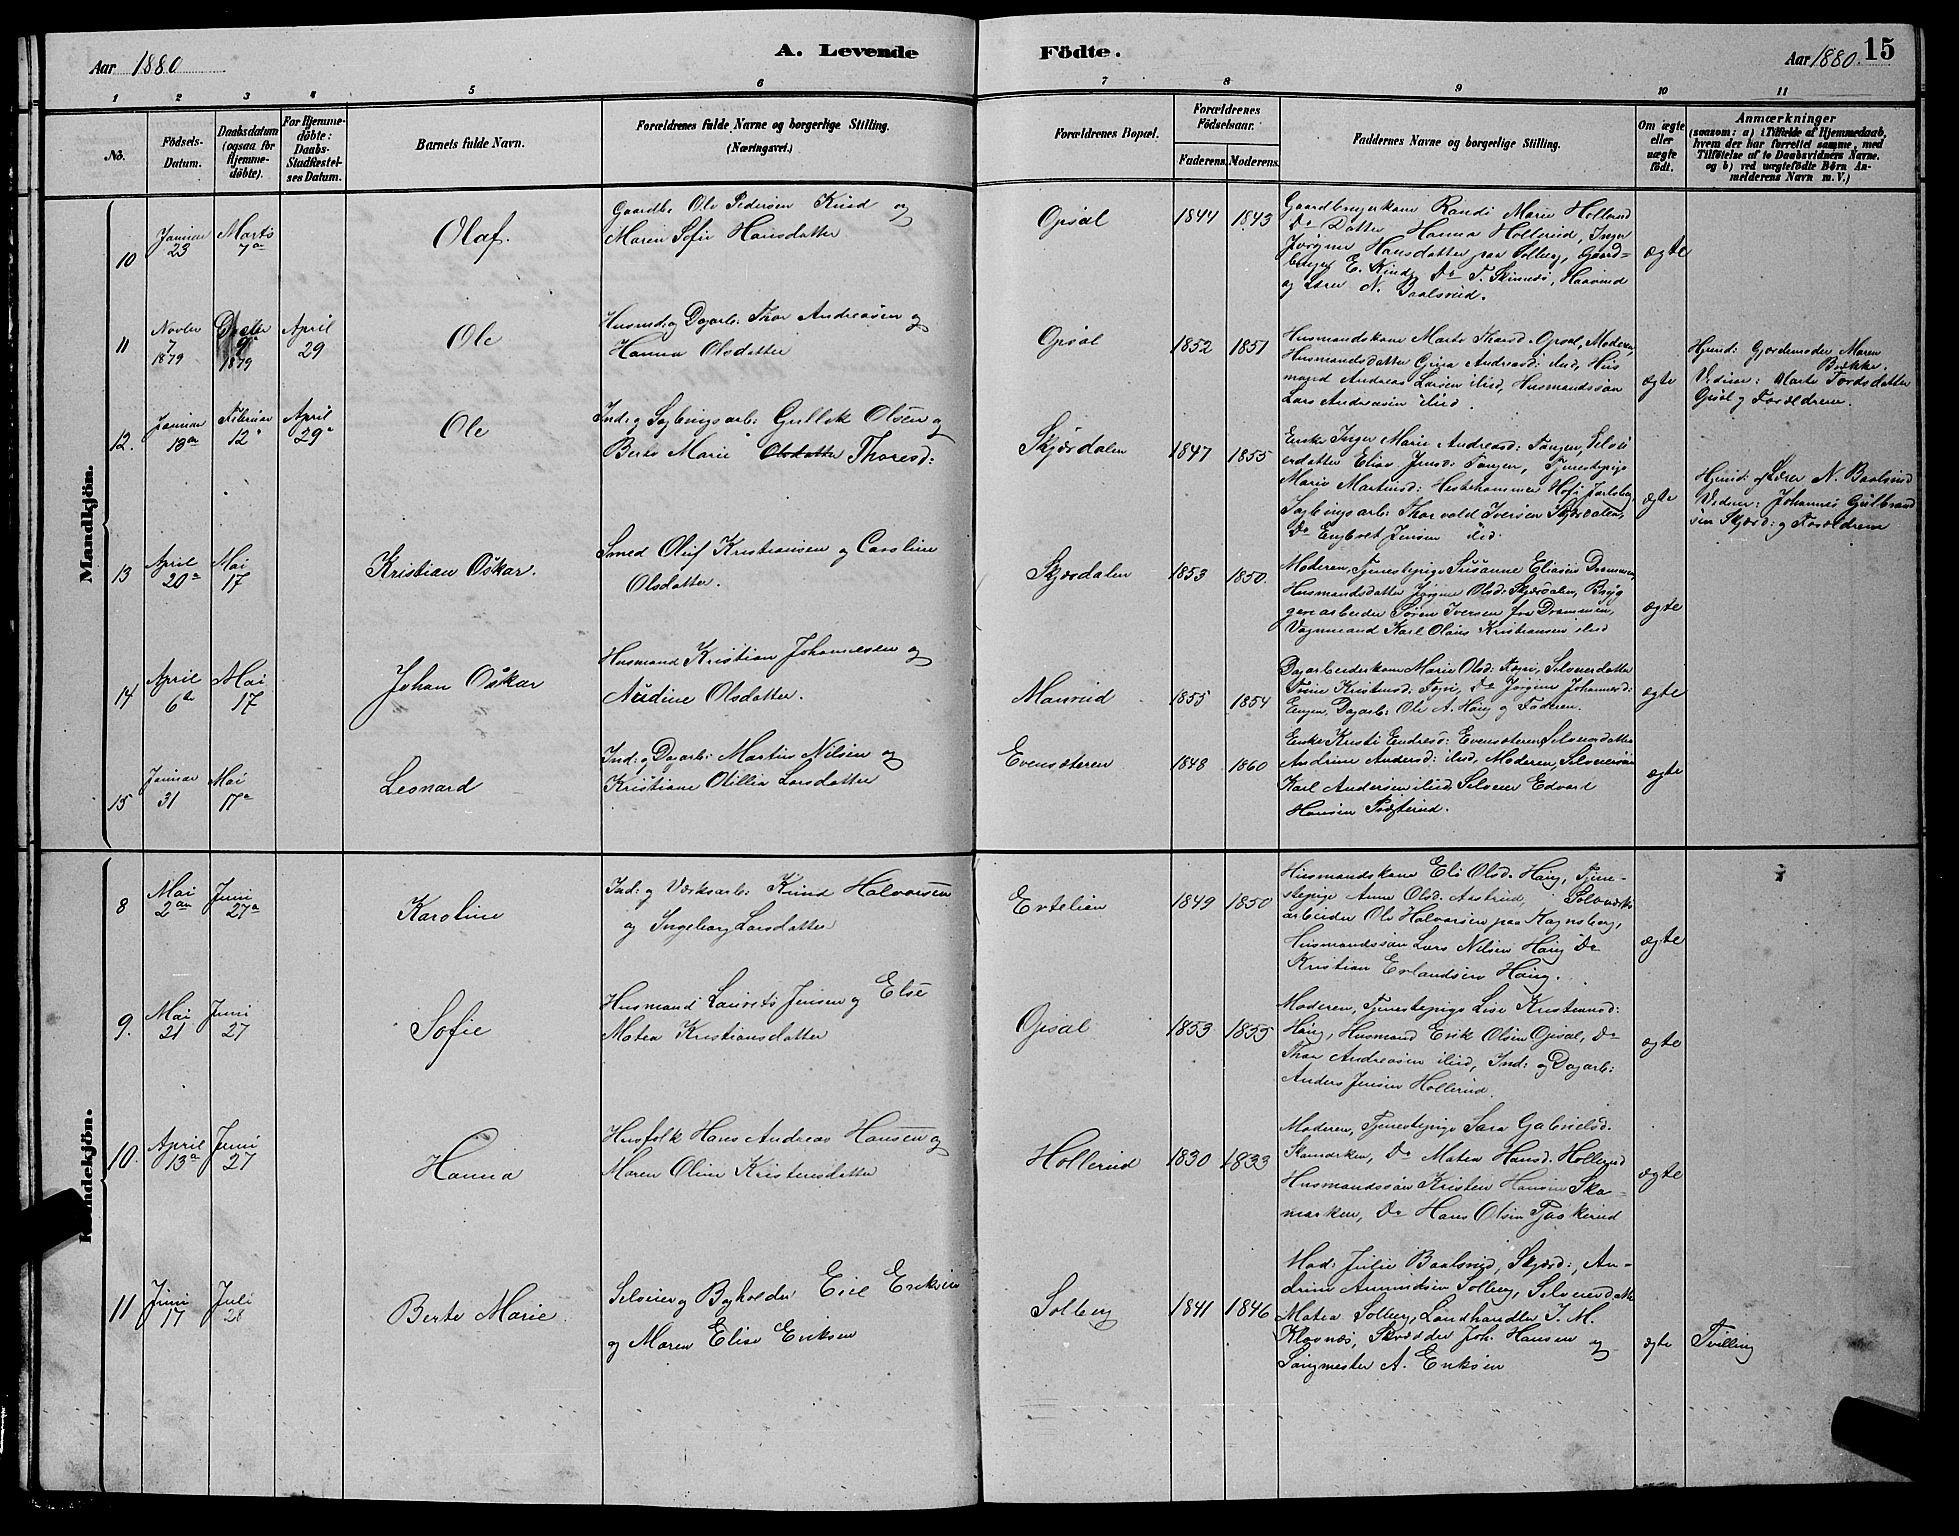 Aar 1880
A. Levende
Födte.
Aar 1880. 15
1 2 3 4 5 6 7 8 9 10 11
No.
Födsels-
Datum.
Daabsdatum
(ogsaa for
Hjemme-
döbte).
For Hjemme-
döbte:
Daabs-
Stadfæstel-
ses Datum.
Barnets fulde Navn.
Forældrenes fulde Navne og borgerlige Stilling.
(Næringsvei.)
Forældrenes Bopæl.
Forældrenes
Födselsaar.
Faderens. Moderens.
Faddernes Navne og borgerlige Stilling.
Om ægte
eller
uægte
födt.
Anmærkninger
(saasom: a) i Tilfælde af Hjemmedaab,
hvem der har forrettet samme, med
Tilföielse af to Daabsvidners Navne.
og b) ved uægtefödte Börn An-
melderens Navn m. V.)
Mandkjön.
10
Januar
23
Marts
7de
Olaf.
Gaardbr. Ole Pedersen Kind og
Maren Sofie Hansdatter
Opsal
1844 1843
Gaardbrugerkone Randi Marie Hollerud
Do Datter Hanna Hollerud, Inger
Jørgine Hansdatter paa Solberg, Gaard-
bruger E. Kind, Do T. Skinnes, Haavind
og Lærer N. Baalsrud.
ægte
11
Novbr
7
1879
9
1879
April
29
Ole
Husmd. og Dagarb: Thor Andreasen og
Hanna Olsdatter
Opsal
1852 1851
Husmandskone Marte Thorsd. Opsal, Moderen,
Husmandsdatter Gina Andreasd: ibid, Hus
mand Andreas Larsen ibid, Husmandssøn
Lars Andreasen ibid.
ægte
Hjmd: Gjordemoder Maren
Bække.
Vidner: Marte Tordsdatter
Opsal og Forældrene.
12.
Januar
18de
Februar
12
April
29
Ole
Ind: og Sagbrugsarb: Gullik Olsen og
Berte Marie Olsdatter Thoresd:
Skjærdalen
1847 1855
Enke Inger Marie Andreasd: Tangen, Selvei
erdatter Elise Jensd: Tangen, Tjenestepige
Marie Martinsd: Hestehammer Hofs Jarlsberg,
Sagbrugsarb: Thorvald Iversen Skjærdalen,
Do Engbret Jensen ibid.
ægte
Hjmd: af Lærer N. Baalsrud
Vidner: Johannes Gulbrand
sen Skjærd: og Forældrene
13
April
20de
Mai
17
Kristian Oskar.
Smed Oluf Kristiansen og Caroline
Olsdatter.
Skjærdalen
1853 1850.
Moderen, Tjenestepige Susanne Eliasen Drammen,
Husmandsdatter Jørgine Olsd: Skjærdalen, Bryg
geriarbeider Søren Iversen fra Drammen,
Vognmand Karl Olaus Kristiansen ibid
ægte
14
April
6te
Mai
17
Johan Oskar
Husmand Kristian Johannessen og
Nudine Olsdatter.
Mansrud
1855 1854
Dagarbeiderkone Marie Olsd: Fosse, Selveierdatter
Kristensd: Do Jørgine Johannesd:
Engen, Dagarb: Ole A. Haug og Faderen.
ægte
15
Januar
31
Mai
17de
Leonard
Ind: og Dagarb: Martin Nilsen og
Kristiane Otillia Larsdatter
Evensæteren
1848 1860
Enke Kristi Endresd: Evensæteren, Selveierdatter
Andrine Andersd: ibid, Moderen, Selveiersøn
Karl Andersen ibid, Selveier Edvard
Hansen Fægterud.
ægte
Kvindekjön.
8
Mai
2den
Juni
27de
Karoline
Ind: og Værksarb: Knud Halvorsen
og Ingeborg Larsdatter
Ertelien
1849 1850
Husmandskone Eli Olsd. Haug, Tjene-
stepige Anne Olsd. Aastrud, Sølvværks
arbeider Ole Halvorsen paa Kongsberg,
Husmandssøn Lars Nilsen Haug Do
Kristian Erlandsen Haug.
ægte
9.
Mai
21
Juni
27
Sofie
Husmand Laurits Jensen og Else
Matea Kristiansdatter
Opsal
1853 1855
Moderen, Tjenestepige Lise Kristensd:
Haug, Husmand Erik Olsen Opsal, Do
Thor Andreasen ibid, Ind: og Dagarb:
Anders Jensen Hollerud.
ægte
10.
April
13de
Juni
27
Hanna
Husfolk Hans Andreas Hansen og
Maren Oline Kristensdatter
Hollerud
1830 1833
Moderen, Tjenestepige Sara Gabrielsd.
Skamarken, Do Matea Hansd. Hollerud
Husmandssøn Kristen Hansen Ska-
marken, Do Hans Olsen Fjøskerud
ægte
11
Juni
17
Juli
28
Berte Marie
Selveier og Boghandler Eiel Eriksen
og Maren Elise Eriksen
Solberg
1841 1846
Mad: Julie Baalsrud, Skjærd:, An-
drine Amundsen Solberg, Selveierdatter
Matea Solberg, Landhandler I. M.
Klovnæs, Skrædder Joh. Hansen og
Sangmester A. Eriksen
ægte
Tvilling